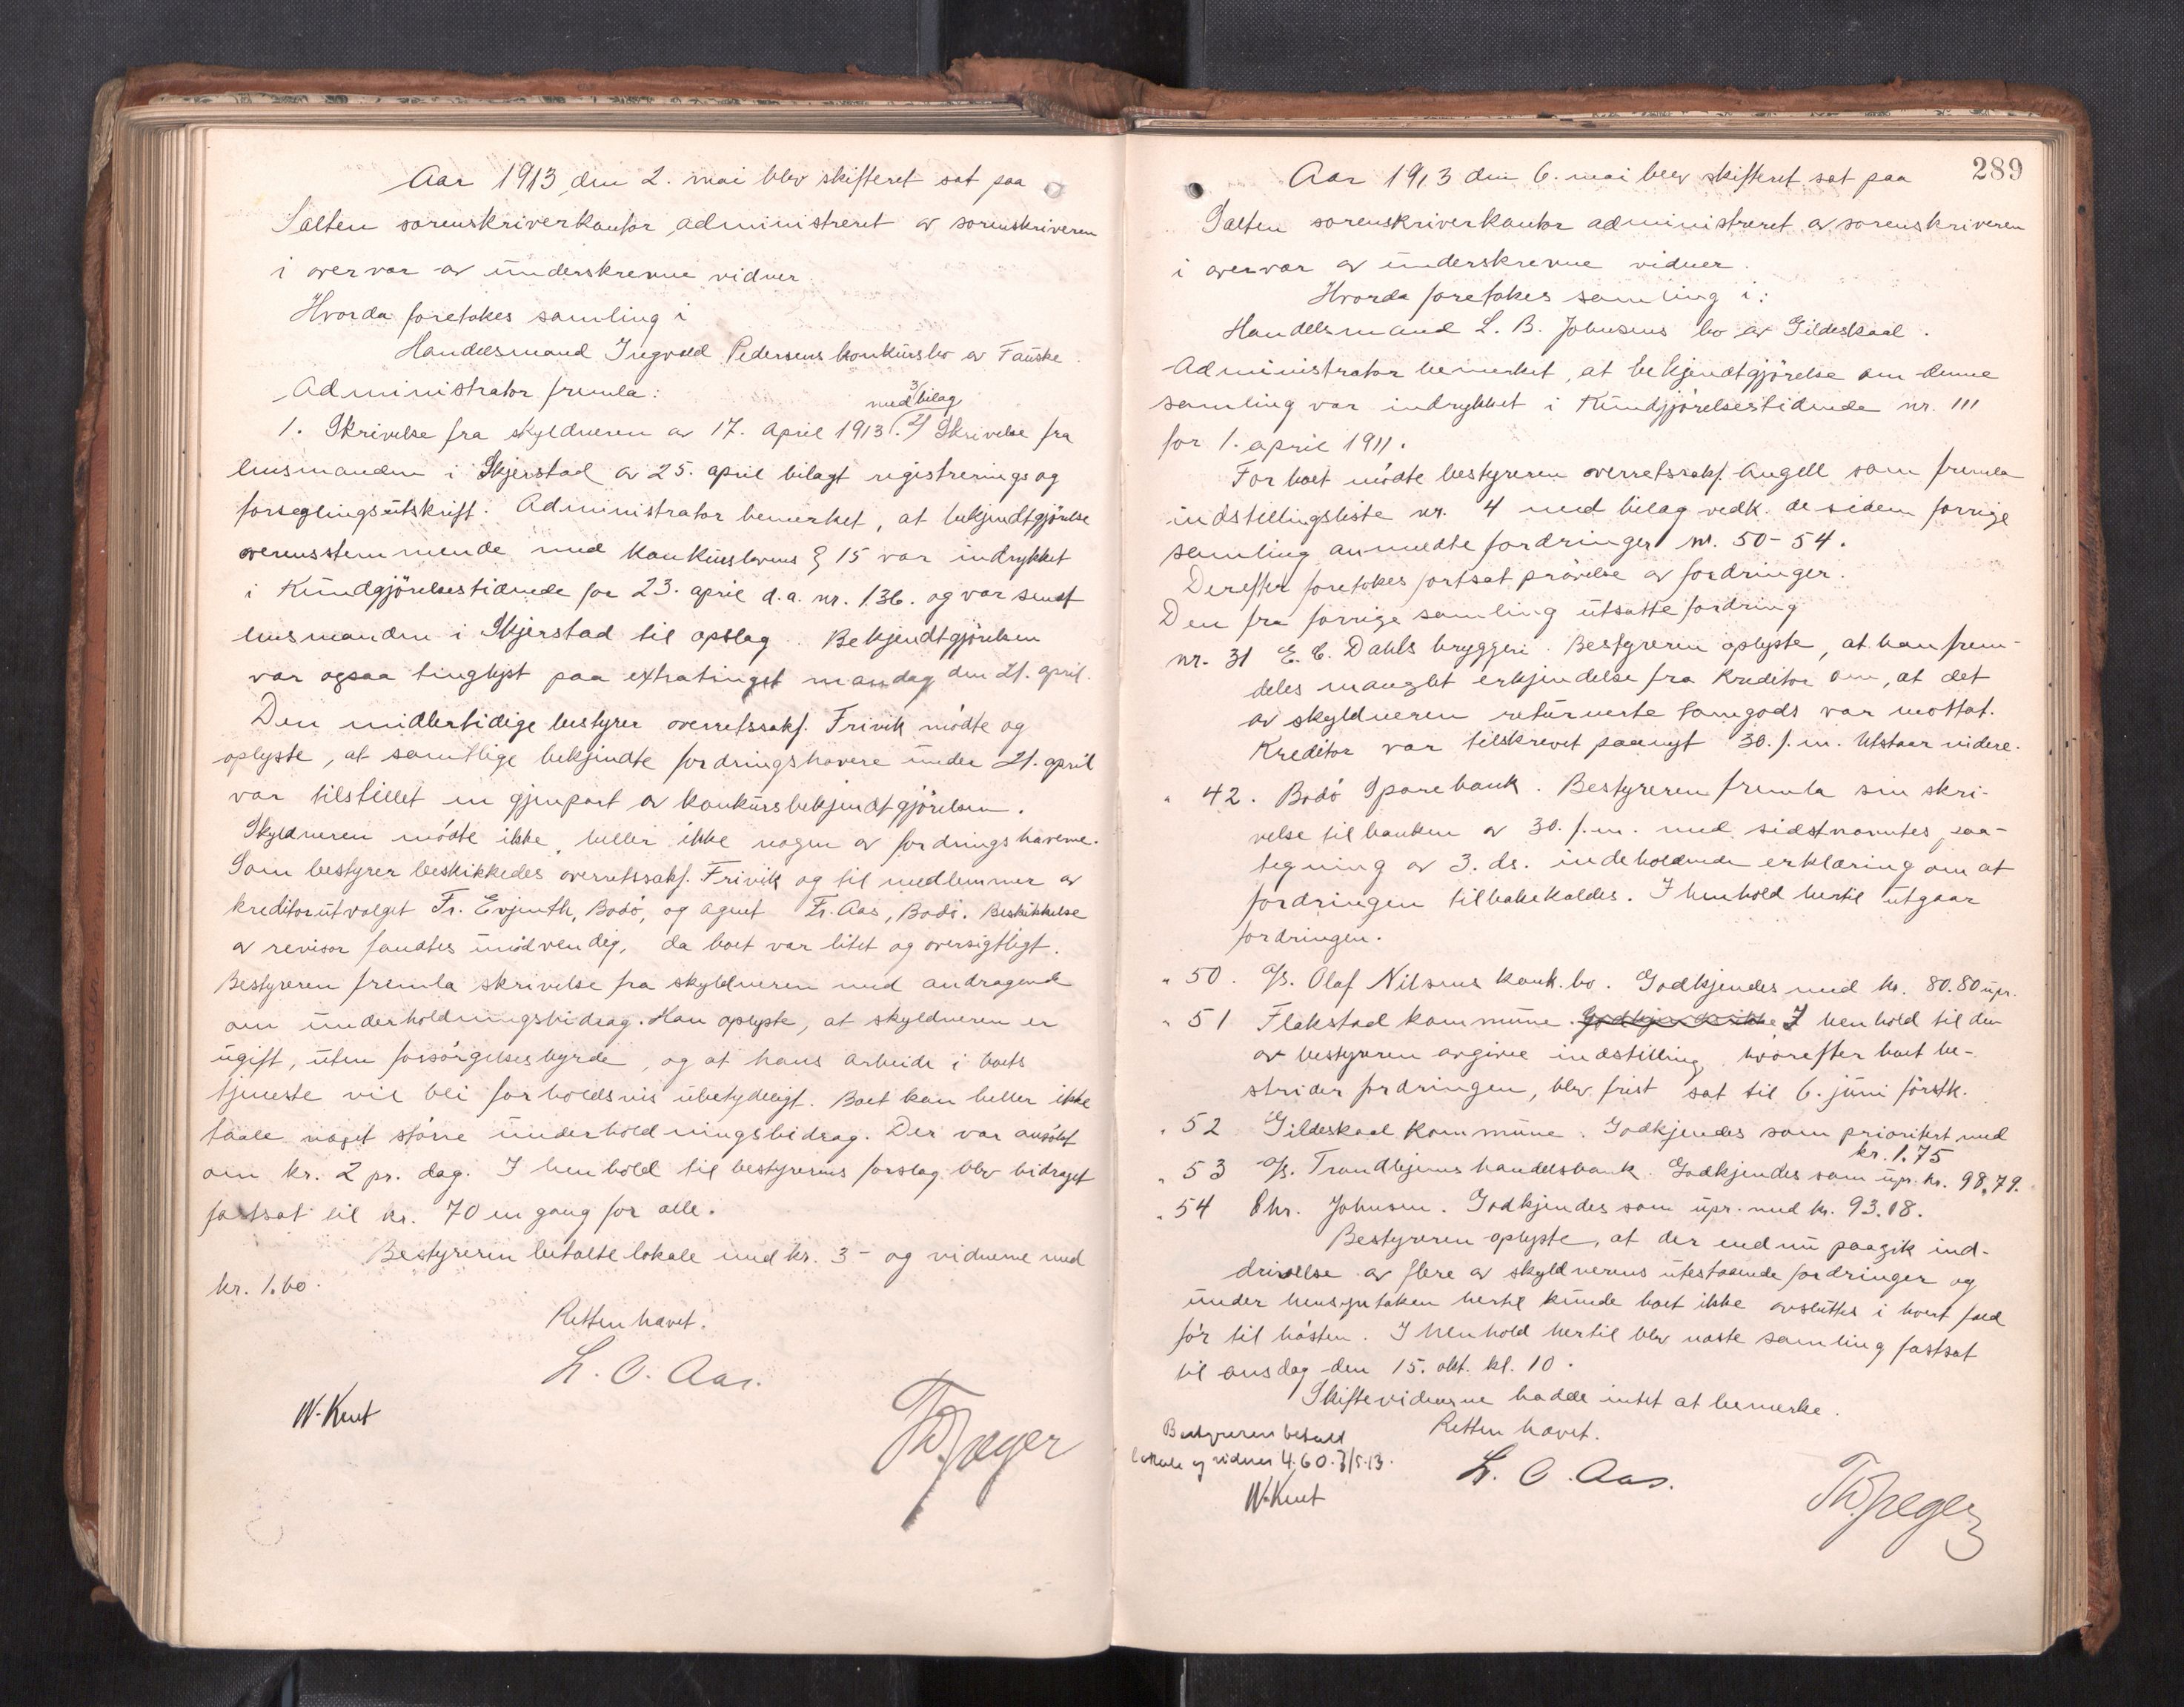 Aar 1913 den 2. mai blev skifteret sat paa
Salten sorenskriverkontor administreret av sorenskriveren
i overvær av underskrevne vidner
Hvorda foretokes samling i
Handelsmand Ingvald Pedersens konkursbo av Fauske.
Administrator fremla:
med 3 bilag
1. Skrivelse fra skyldneren av 17. april 1913. 2/ Skrivelse fra
lensmanden i Skjerstad av 25. april bilagt registrerings og
forseglingsutskrift. Administrator bemerket, at bekjendtgjörelse
overensstemmende med konkurslovens § 15 var indrykket
i Kundgjörelsestidende for 23. april d.a. nr. 136. og var sendt
lensmanden i Skjerstad til opslag. Bekjendtgjörelsen
var ogsaa tinglyst paa extratinget mandag den 21. april.
Den midlertidige bestyrer overretssakf. Frivik mödte og
oplyste, at samtlige bekjendte fordringshavere under 21. april
var tilstillet en gjenpart av konkursbekjendtgjörelsen.
Skyldneren mödte ikke, heller ikke nogen av fordringshaverne.
Som bestyrer beskikkedes overretssakf. Frivik og til medlemmer av
kreditorutvalget Fr. Evjenth, Bodö, og agent Fr. Aas, Bodö. Beskikkelse
av revisor fandtes unödvendig, da boet var litet og oversigtligt.
Bestyreren fremla skrivelse fra skyldneren med andragende
om underholdningsbidrag. Han oplyste, at skyldneren er
ugift, uten forsörgelsesbyrde, og at hans arbeide i boets
tjeneste vil bli forholdsvis ubetydeligt. Boet kan heller ikke
taale noget större underholdningsbidrag. Der var ansökt
om kr. 2 pr. dag. I henhold til bestyrerens forslag blev bidraget
fastsat til kr. 70 en gang for alle.
Bestyreren betalte lokale med kr. 3- og vidnerne med
kr. 1.60.
Retten hævet.
L. O. Aas.
W. Kent
Th. Jæger
289
Aar 1913 den 6. mai blev skifteret sat paa
Salten sorenskriverkontor administreret av sorenskriveren
i overvær av underskrevne vidner.
Hvorda foretokes samling i:
Handelsmand L. B. Johnsens bo av Gildeskaal.
Administrator bemerket, at bekjendtgjörelse om denne
samling var indrykket i Kundgjörelsestidende nr. 111
for 1. april 1911.
For boet mödte bestyreren overretssakf. Angell som fremla
indstillingsliste nr. 4 med bilag vedk. de siden forrige
samling anmeldte fordringer nr. 50-54.
Derefter foretokes fortsat prövelse av fordringer.
Den fra forrige samling utsatte fordring
nr. 31 E. C. Dahls bryggeri. Bestyreren oplyste, at han frem-
deles manglet erkjendelse fra kreditor om, at det
av skyldneren returnerte tomgods var mottat.
Kreditor var tilskrevet paanyt 30. f. m. Utstaar videre.
" 42. Bodö Sparebank. Bestyreren fremla sin skri-
velse til banken av 30. f. m. med sidstnævntes paa-
tegning av 3. ds. indeholdende erklæring om at
fordringen tilbakekaldes. I henhold hertil utgaar
fordringen.
" 50. A/S. Olaf Nilsens konk. bo. Godkjendes med kr. 80.80 upr.
" 51 Flakstad kommune. Godkjendes ikke I henhold til den
av bestyreren avgivne indstilling, hvorefter boet be-
strider fordringen, blev frist sat til 6. juni förstk.
" 52 Gildeskaal kommune. Godkjendes som prioritert med
kr. 1.75
" 53 A/S. Trondhjems handelsbank. Godkjendes som upr. kr. 98.79.
" 54 Chr. Johnsen. Godkjendes som upr. med kr. 93.18.
Bestyreren oplyste, at der endnu paagik ind-
drivelse av flere av skyldnerens utestaaende fordringer og
under hensyntaken hertil kunde boet ikke avsluttes i hvert fald
för til hösten. I henhold hertil blev næste samling fastsat
til onsdag den 15. okt. kl. 10.
Skiftevidnerne hadde intet at bemerke.
Retten hævet.
Bestyreren betalt
lokale og vidner 4.60. 7/5.13.
L. O. Aas.
W. Kent
Th. Jæger